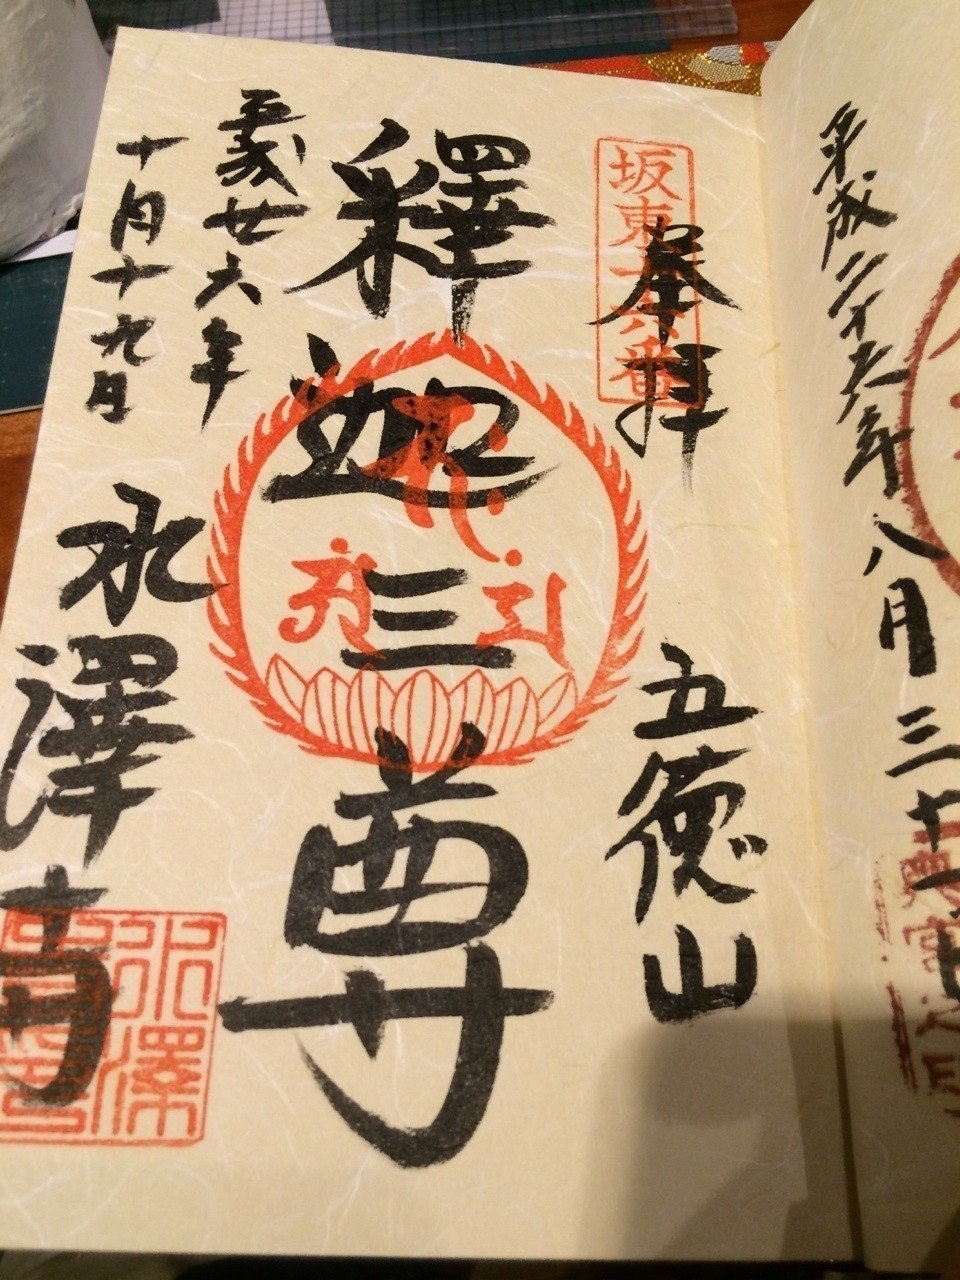 平成二十六年八月三十
坂東十六番
奉拝
五徳山
釋迦三尊
平成廿六年
十月十九日
水澤寺
水澤